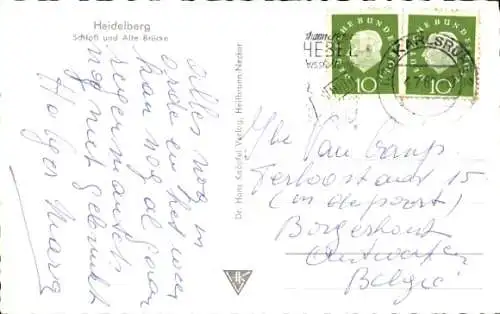 Heidelberg
Schloß und Alte Brücke
Alles nog in
orde en het weer
kan nog al gaan
regenmantels
nog niet gebruikt
Holger Mara
Dr. Hans Knöpfel Verlag, Heilbronn-Neckar
HK
HEBEL
KARLSRUHE
DEUTSCHE BUNDESPOST
10
DEUTSCHE BUNDESPOST
10
Mhr Van Camp
Terloostraat 15
(in de poort)
Borgerhout
Antwerpen
België